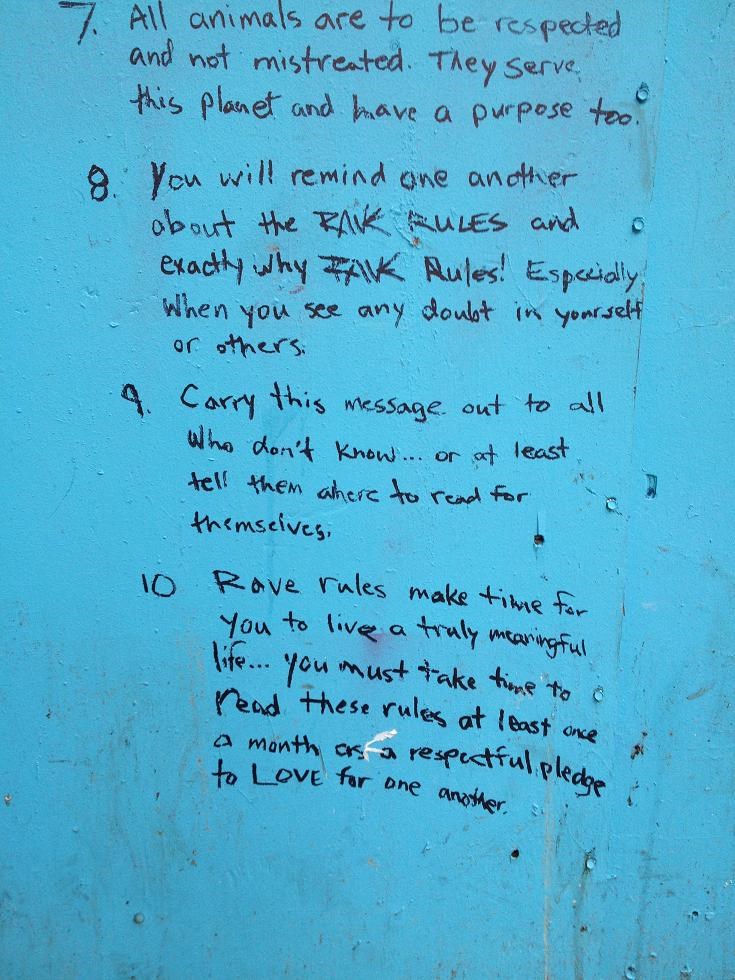 7. All animals are to be respected
and not mistreated. They serve
this planet and have a purpose too.
8. You will remind one another
about the RULES and
exactly why Rules! Especially
When you see any doubt in yourself
or others.
9. Carry this message out to all
Who don't know... or at least
tell them where to read for
themselves.
10 Rave rules make time for
You to live a truly meaningful
life... you must take time to
read these rules at least once
a month as a respectful pledge
to LOVE for one another.